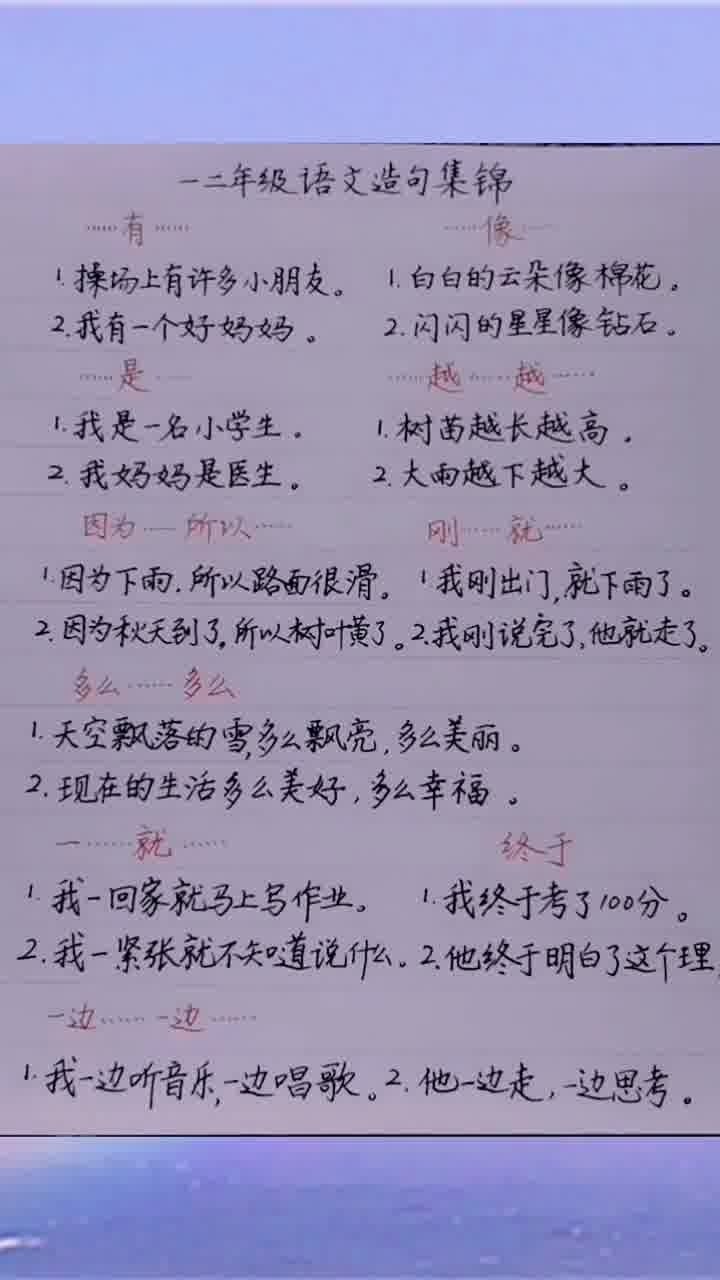 一二年级语文造句集锦
……有……  ……像……
1.操场上有许多小朋友。 1.白白的云朵像棉花。
2.我有一个好妈妈。 2.闪闪的星星像钻石。
……是……  ……越……越……
1.我是一名小学生。 1.树苗越长越高。
2.我妈妈是医生。 2.大雨越下越大。
因为……所以……  刚……就……
1.因为下雨,所以路面很滑。 1.我刚出门,就下雨了。
2.因为秋天到了,所以树叶黄了。 2.我刚说完了,他就走了。
多么……多么
1.天空飘落的雪,多么飘亮,多么美丽。
2.现在的生活多么美好,多么幸福。
一……就……  终于
1.我一回家就马上写作业。 1.我终于考了100分。
2.我一紧张就不知道说什么。 2.他终于明白了这个理,
一边……一边……
1.我一边听音乐,一边唱歌。 2.他一边走,一边思考。